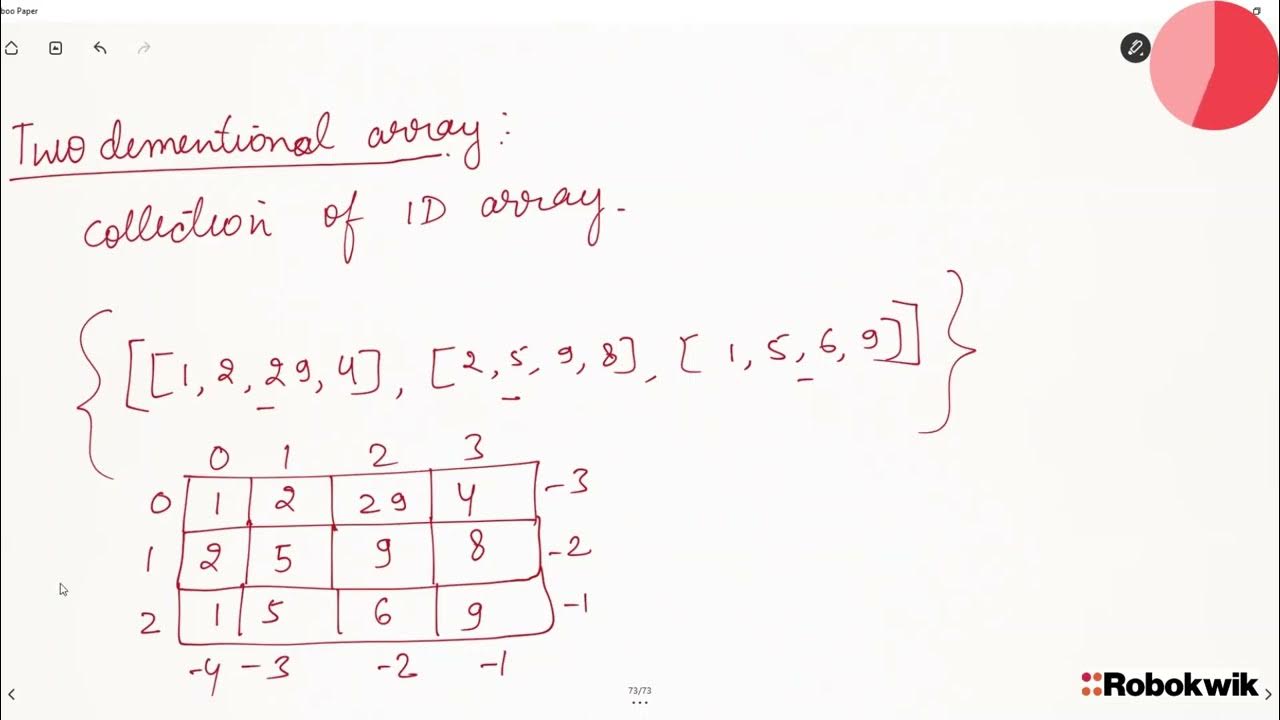 boo Paper
Two dementional array:
collection of 1D array.
{ [[1, 2, 29, 4], [2, 5, 9, 8], [1, 5, 6, 9]] }
0 1 2 3
0 1 2 29 4 -3
1 2 5 9 8 -2
2 1 5 6 9 -1
-4 -3 -2 -1
73/73
Robokwik